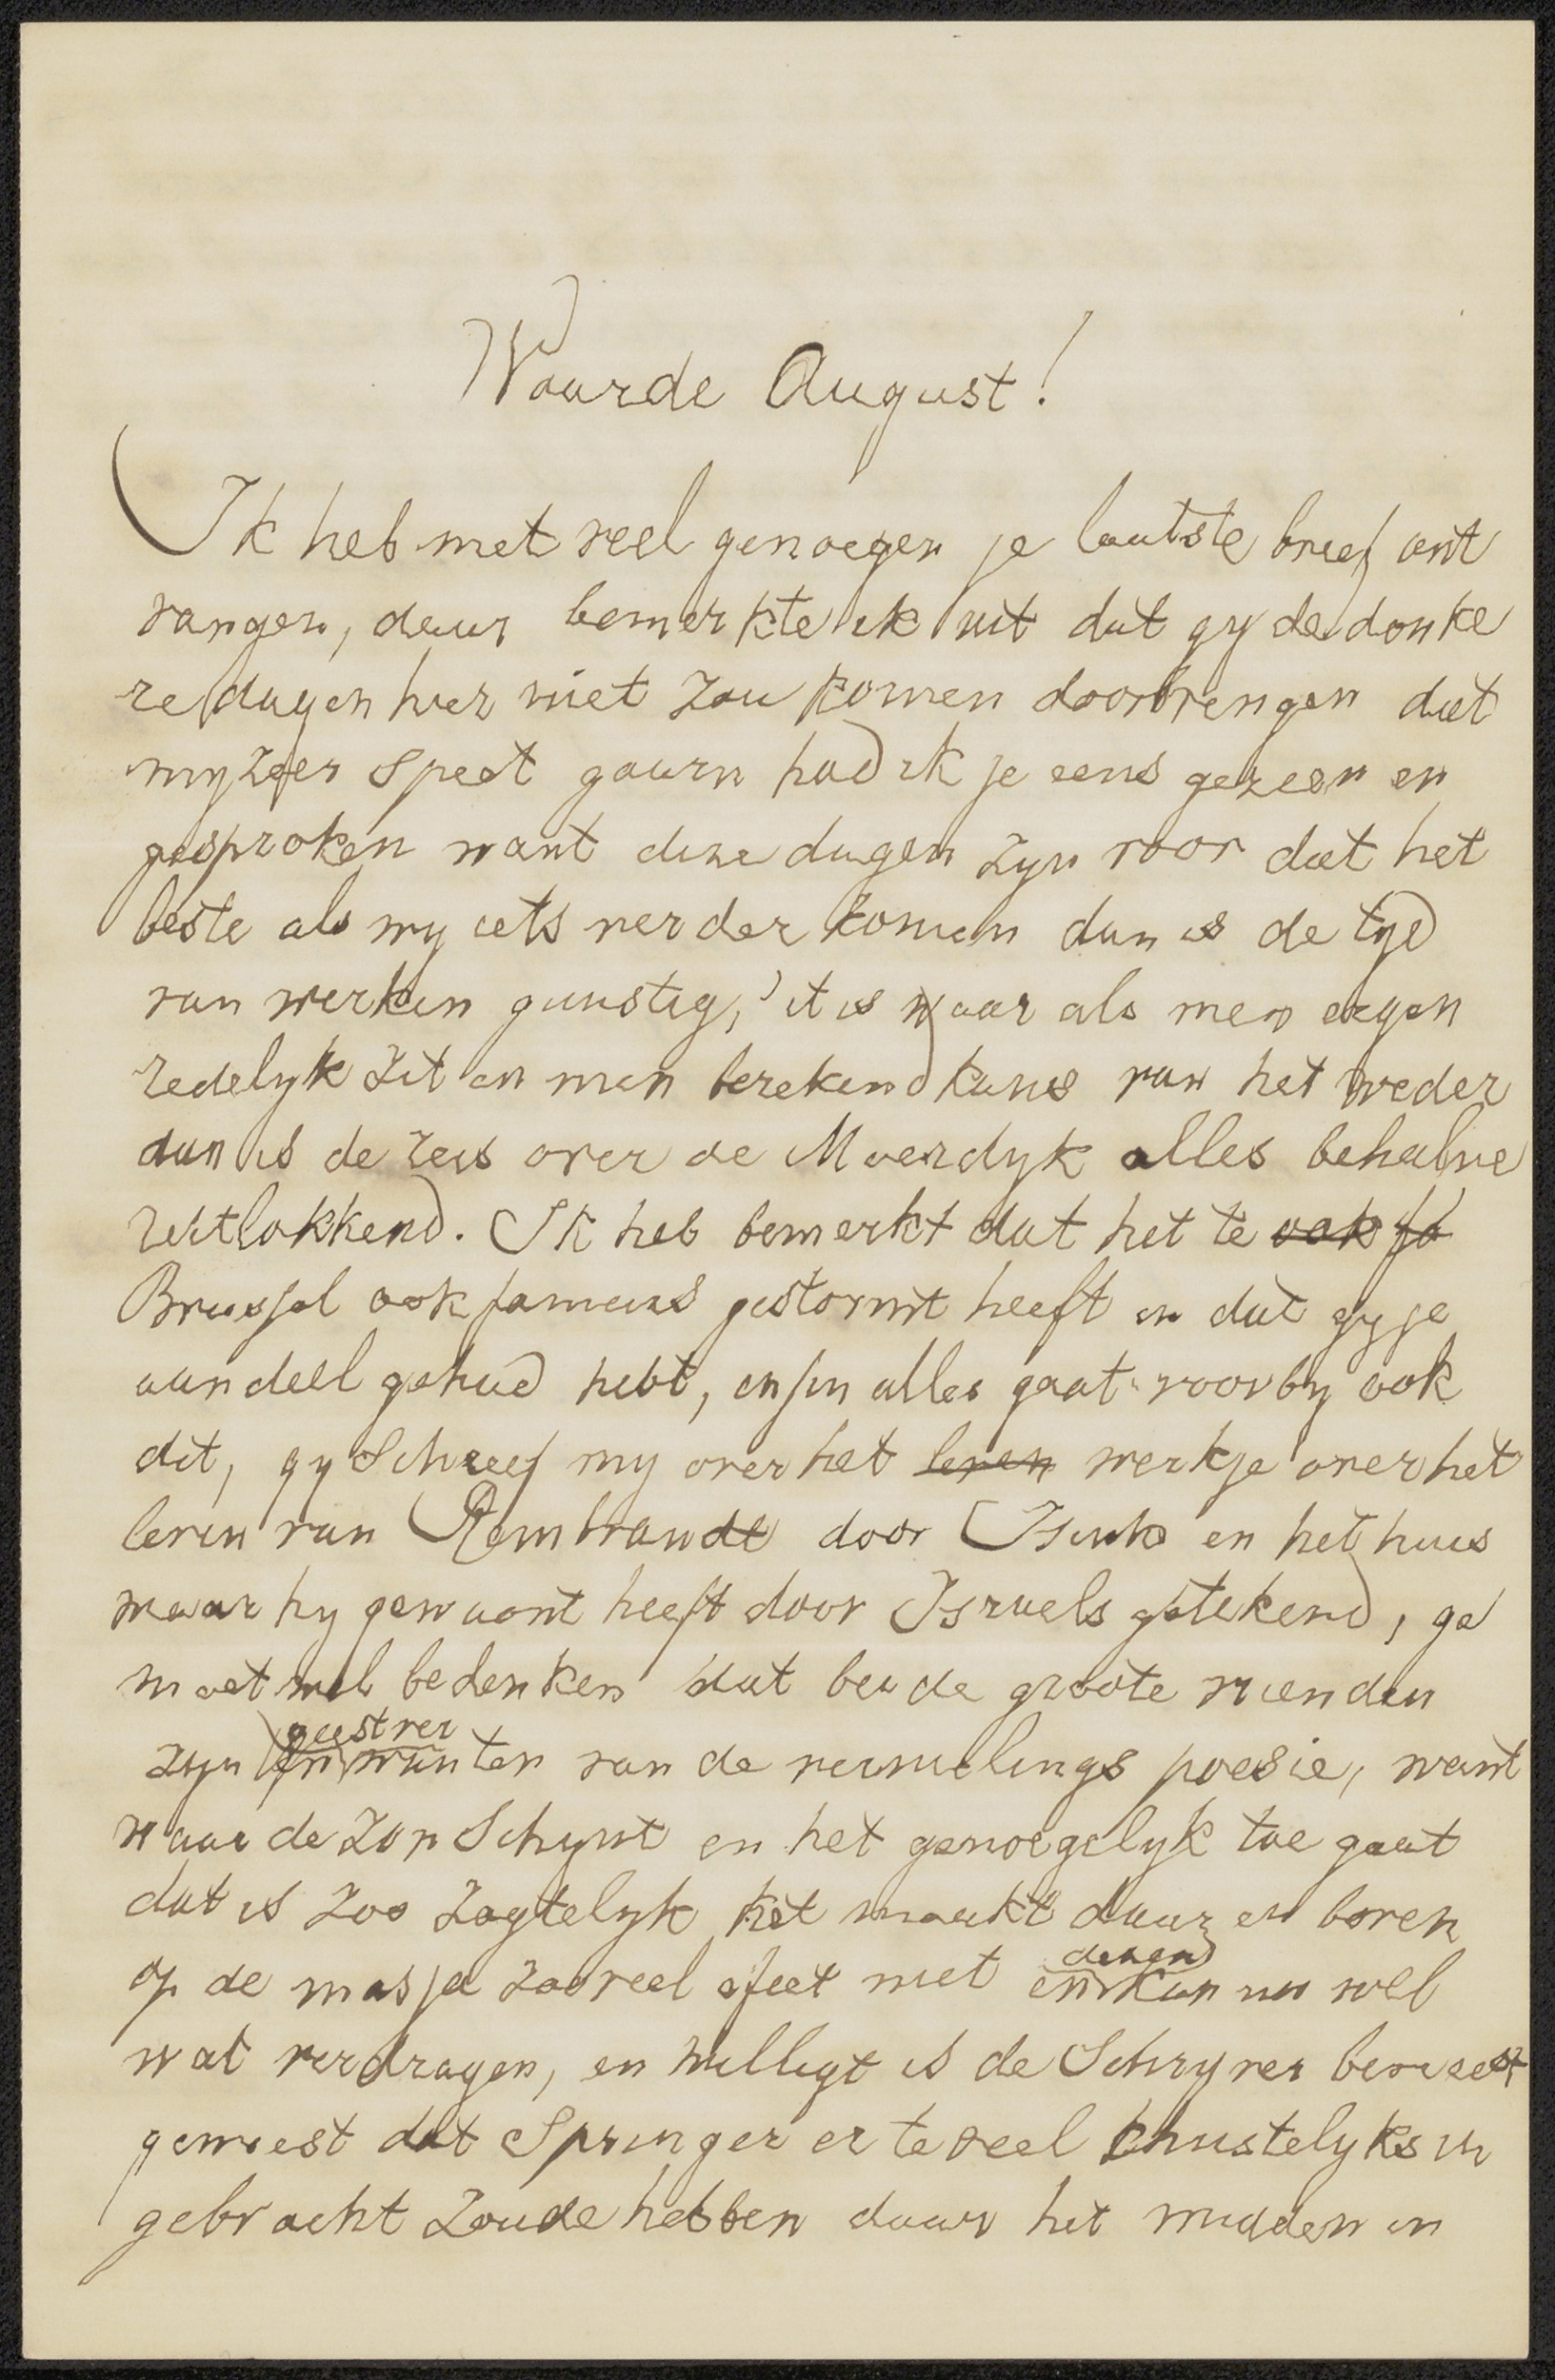 Waarde August!
Ik heb met veel genoegen je laatste brief ont
vangen, daar bemerkte ik uit dat gy de donke
re dagen hier niet zou komen doorbrengen dat
my zeer speet gaarn had ik je eens gezien en
gesproken want deze dagen zyn voor dat het
beste als wy iets verder komen dan is de tyd
van werken gunstig, 't is waar als men eigen
redelyk zit en men berekend kans van het weder
dan is de reis over de Moerdyk alles behalve
uitlokkend. Ik heb bemerkt dat het te ook fa
Brussel ook fameus gestormt heeft en dat gy je
aandeel gehad hebt, enfin alles gaat voorby ook
dit, gy schreef my over het leven werkje over het
leven van Rembrandt door en het huis
waar hy gewoont heeft door Israels getekend, ge
moet wel bedenken dat beide groote vrienden
zyn en van de poesie, want
waar de zon schynt en het genoegelyk toe gaat
dat is zoo het maakt daar en boven
op de zooveel efeet niet en dezen kan nu wel
wat verdragen, en willigt is de schryver bevreest
geweest dat Springer er te veel in
gebracht zoude hebben daar het midden in